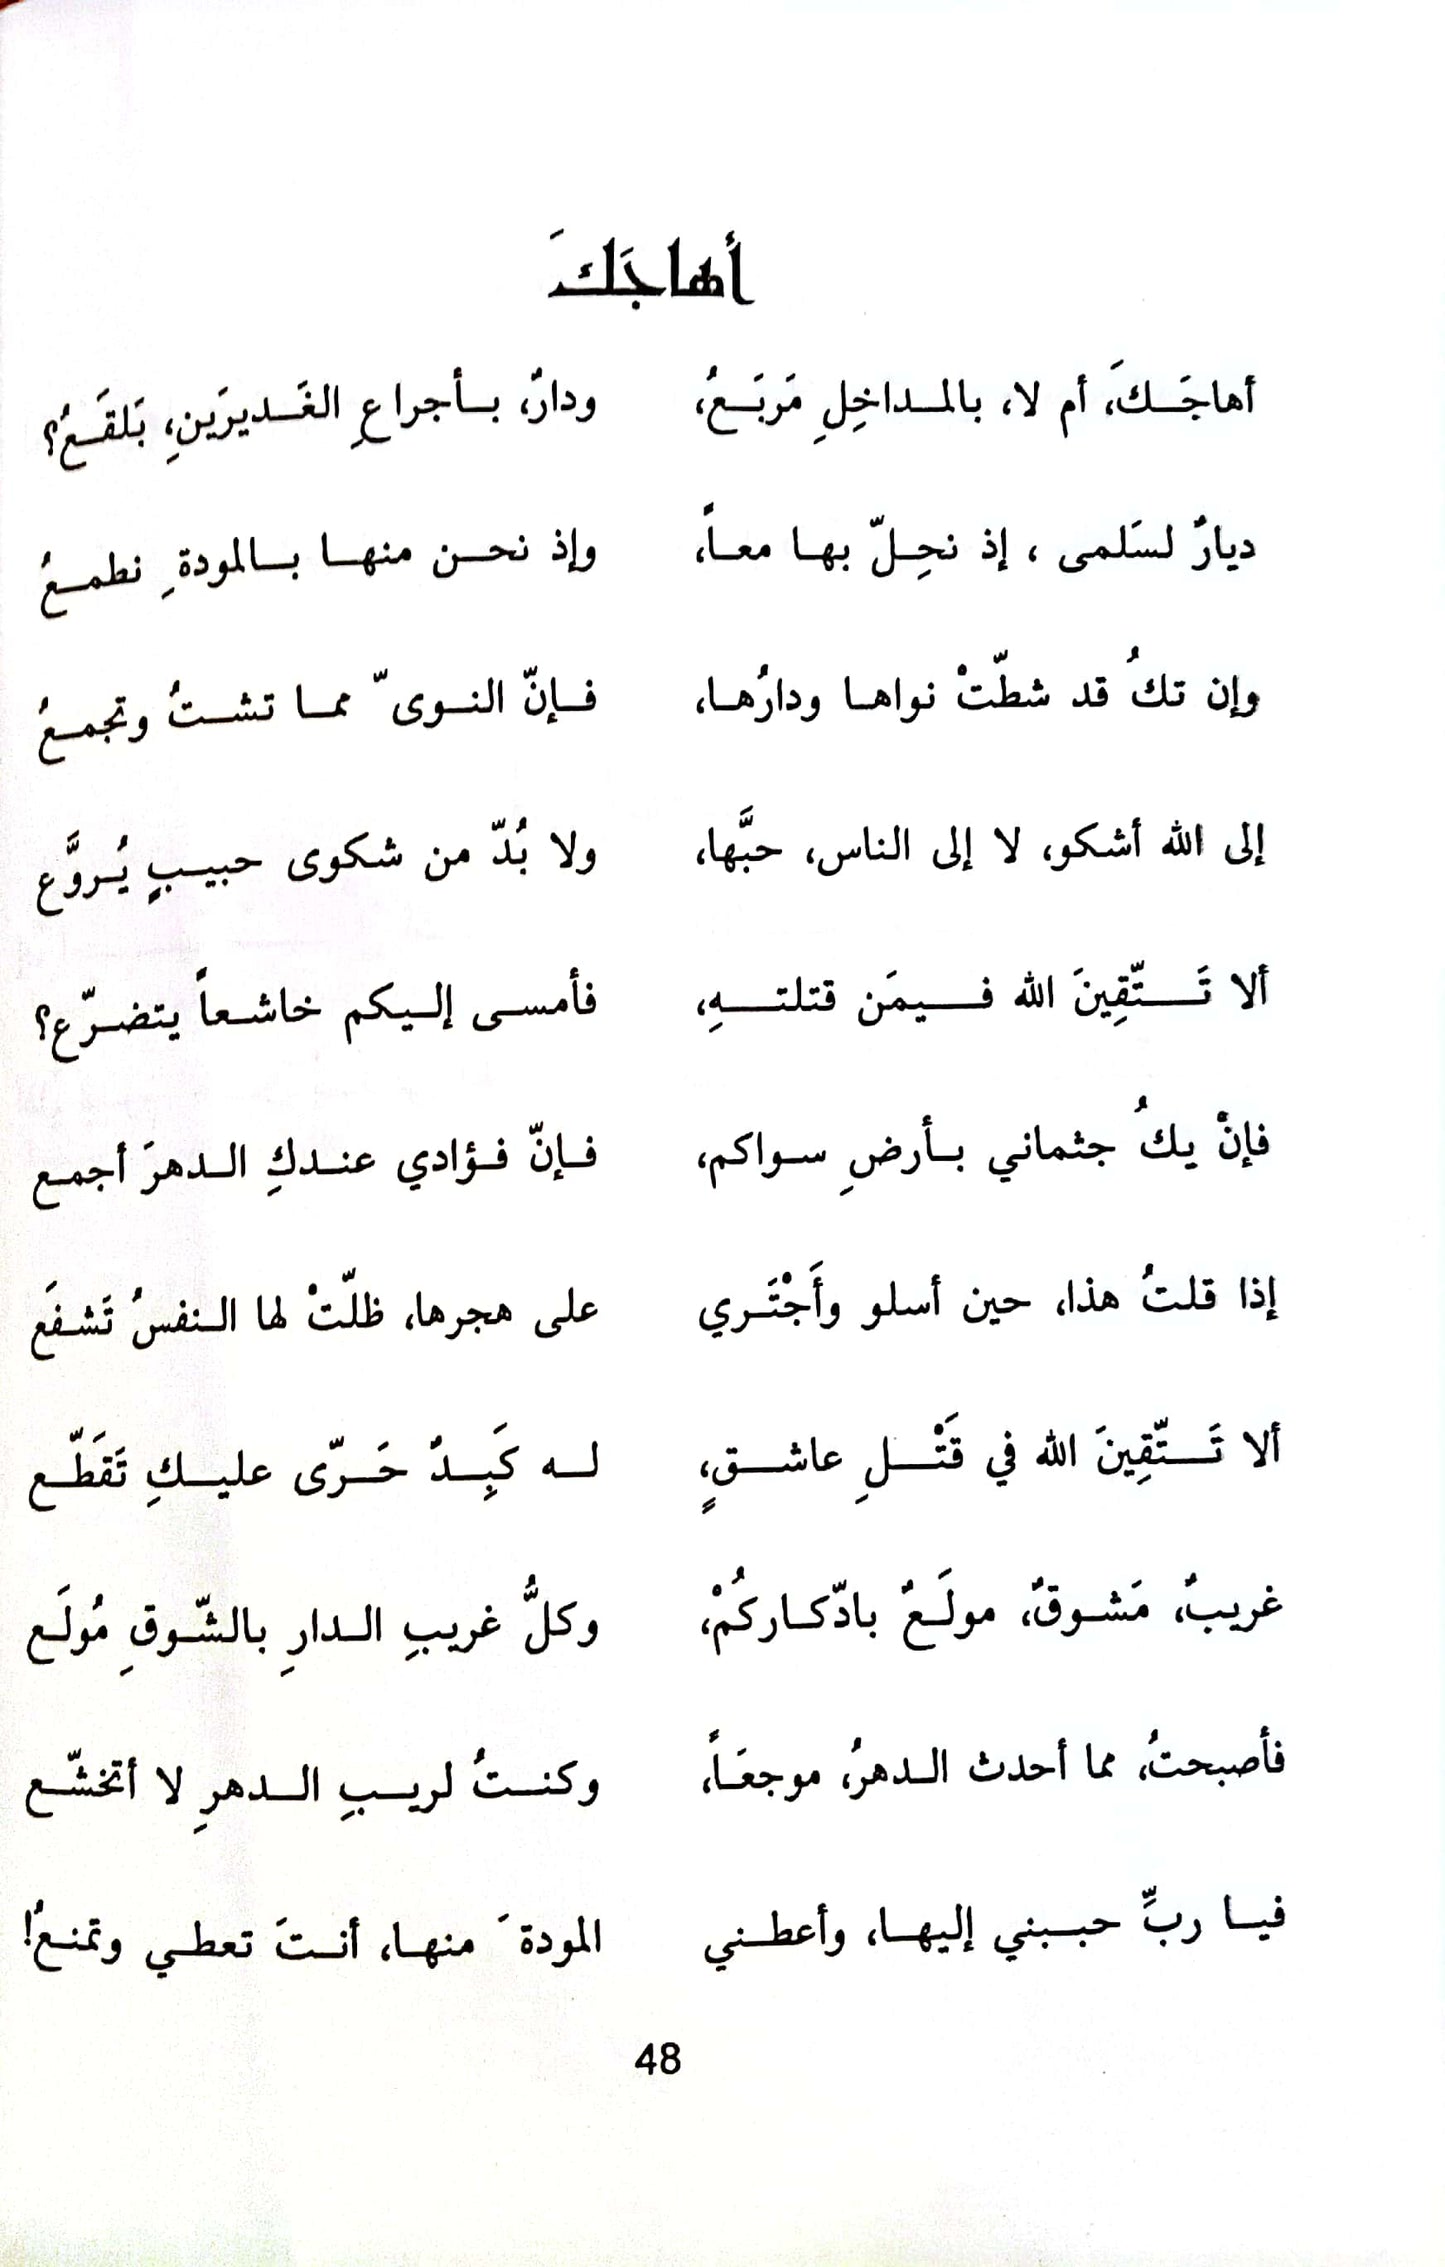 أهاجَكَ
أهاجَـكَ، أم لا، بالمـداخِلِ مَربَـعُ، ودارٌ، بـأجراعِ الغَـديرَينِ، بَلقَـعُ؟
ديارٌ لسَلمى ، إذ نحِـلّ بهـا معـاً، وإذ نحـن منهـا بـالمودةِ نطمـعُ
وإن تكُ قد شطّتْ نواهـا ودارُهـا، فـإنّ النـوى ّ ممـا تشـتُ وتجمـعُ
إلى الله أشكو، لا إلى الناس، حبَّها، ولا بُدّ من شكوى حبيـبٍ يُـروَّع
ألا تَـتّقِينَ الله فـيمَن قتلتـهِ، فأمسـى إلـيكم خاشـعاً يتضـرّع؟
فإنْ يكُ جثماني بـأرضِ سـواكم، فـإنّ فـؤادي عنـدكِ الـدهرَ أجمـع
إذا قلتُ هذا، حين أسلو وأَجْتَـري على هجرها، ظلّتْ لها الـنفسُ تَشـفَع
ألا تَـتّقِينَ الله في قَتْـلِ عاشـقٍ، لـه كَبِـدٌ حَـرّى عليـكِ تَقَطّـع
غريبٌ، مَشـوقٌ، مولَـعٌ بادّكـاركُمْ، وكلُّ غريبِ الـدارِ بالشّـوقِ مُولَـع
فأصبحتُ، مما أحدث الـدهرُ، موجعَـاً، وكنـتُ لريـبِ الـدهرِ لا أتخشّـع
فيـا ربِّ حبـبني إليهـا، وأعطـني المودةَ منهـا، أنـتَ تعطـي وتمنـعُ!
48